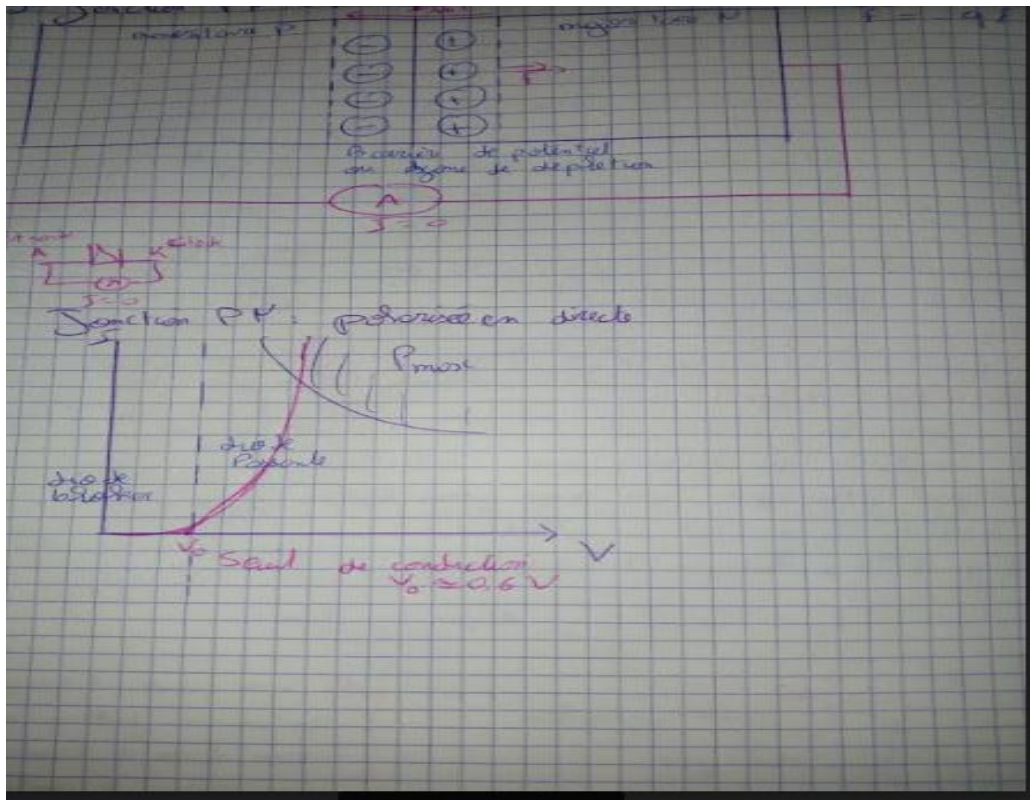 Jonction P
majoritaire P
majoritaire N
- - - -
+ + + +
F
Barrière de potentiel
ou zone de dépletion
A
I = 0
A
K
I = 0
Jonction PN : polarisée en directe
I
Pmax
diode
Passante
diode
bloquée
V0 Seuil de conduction
V0 ≈ 0,6 V
V